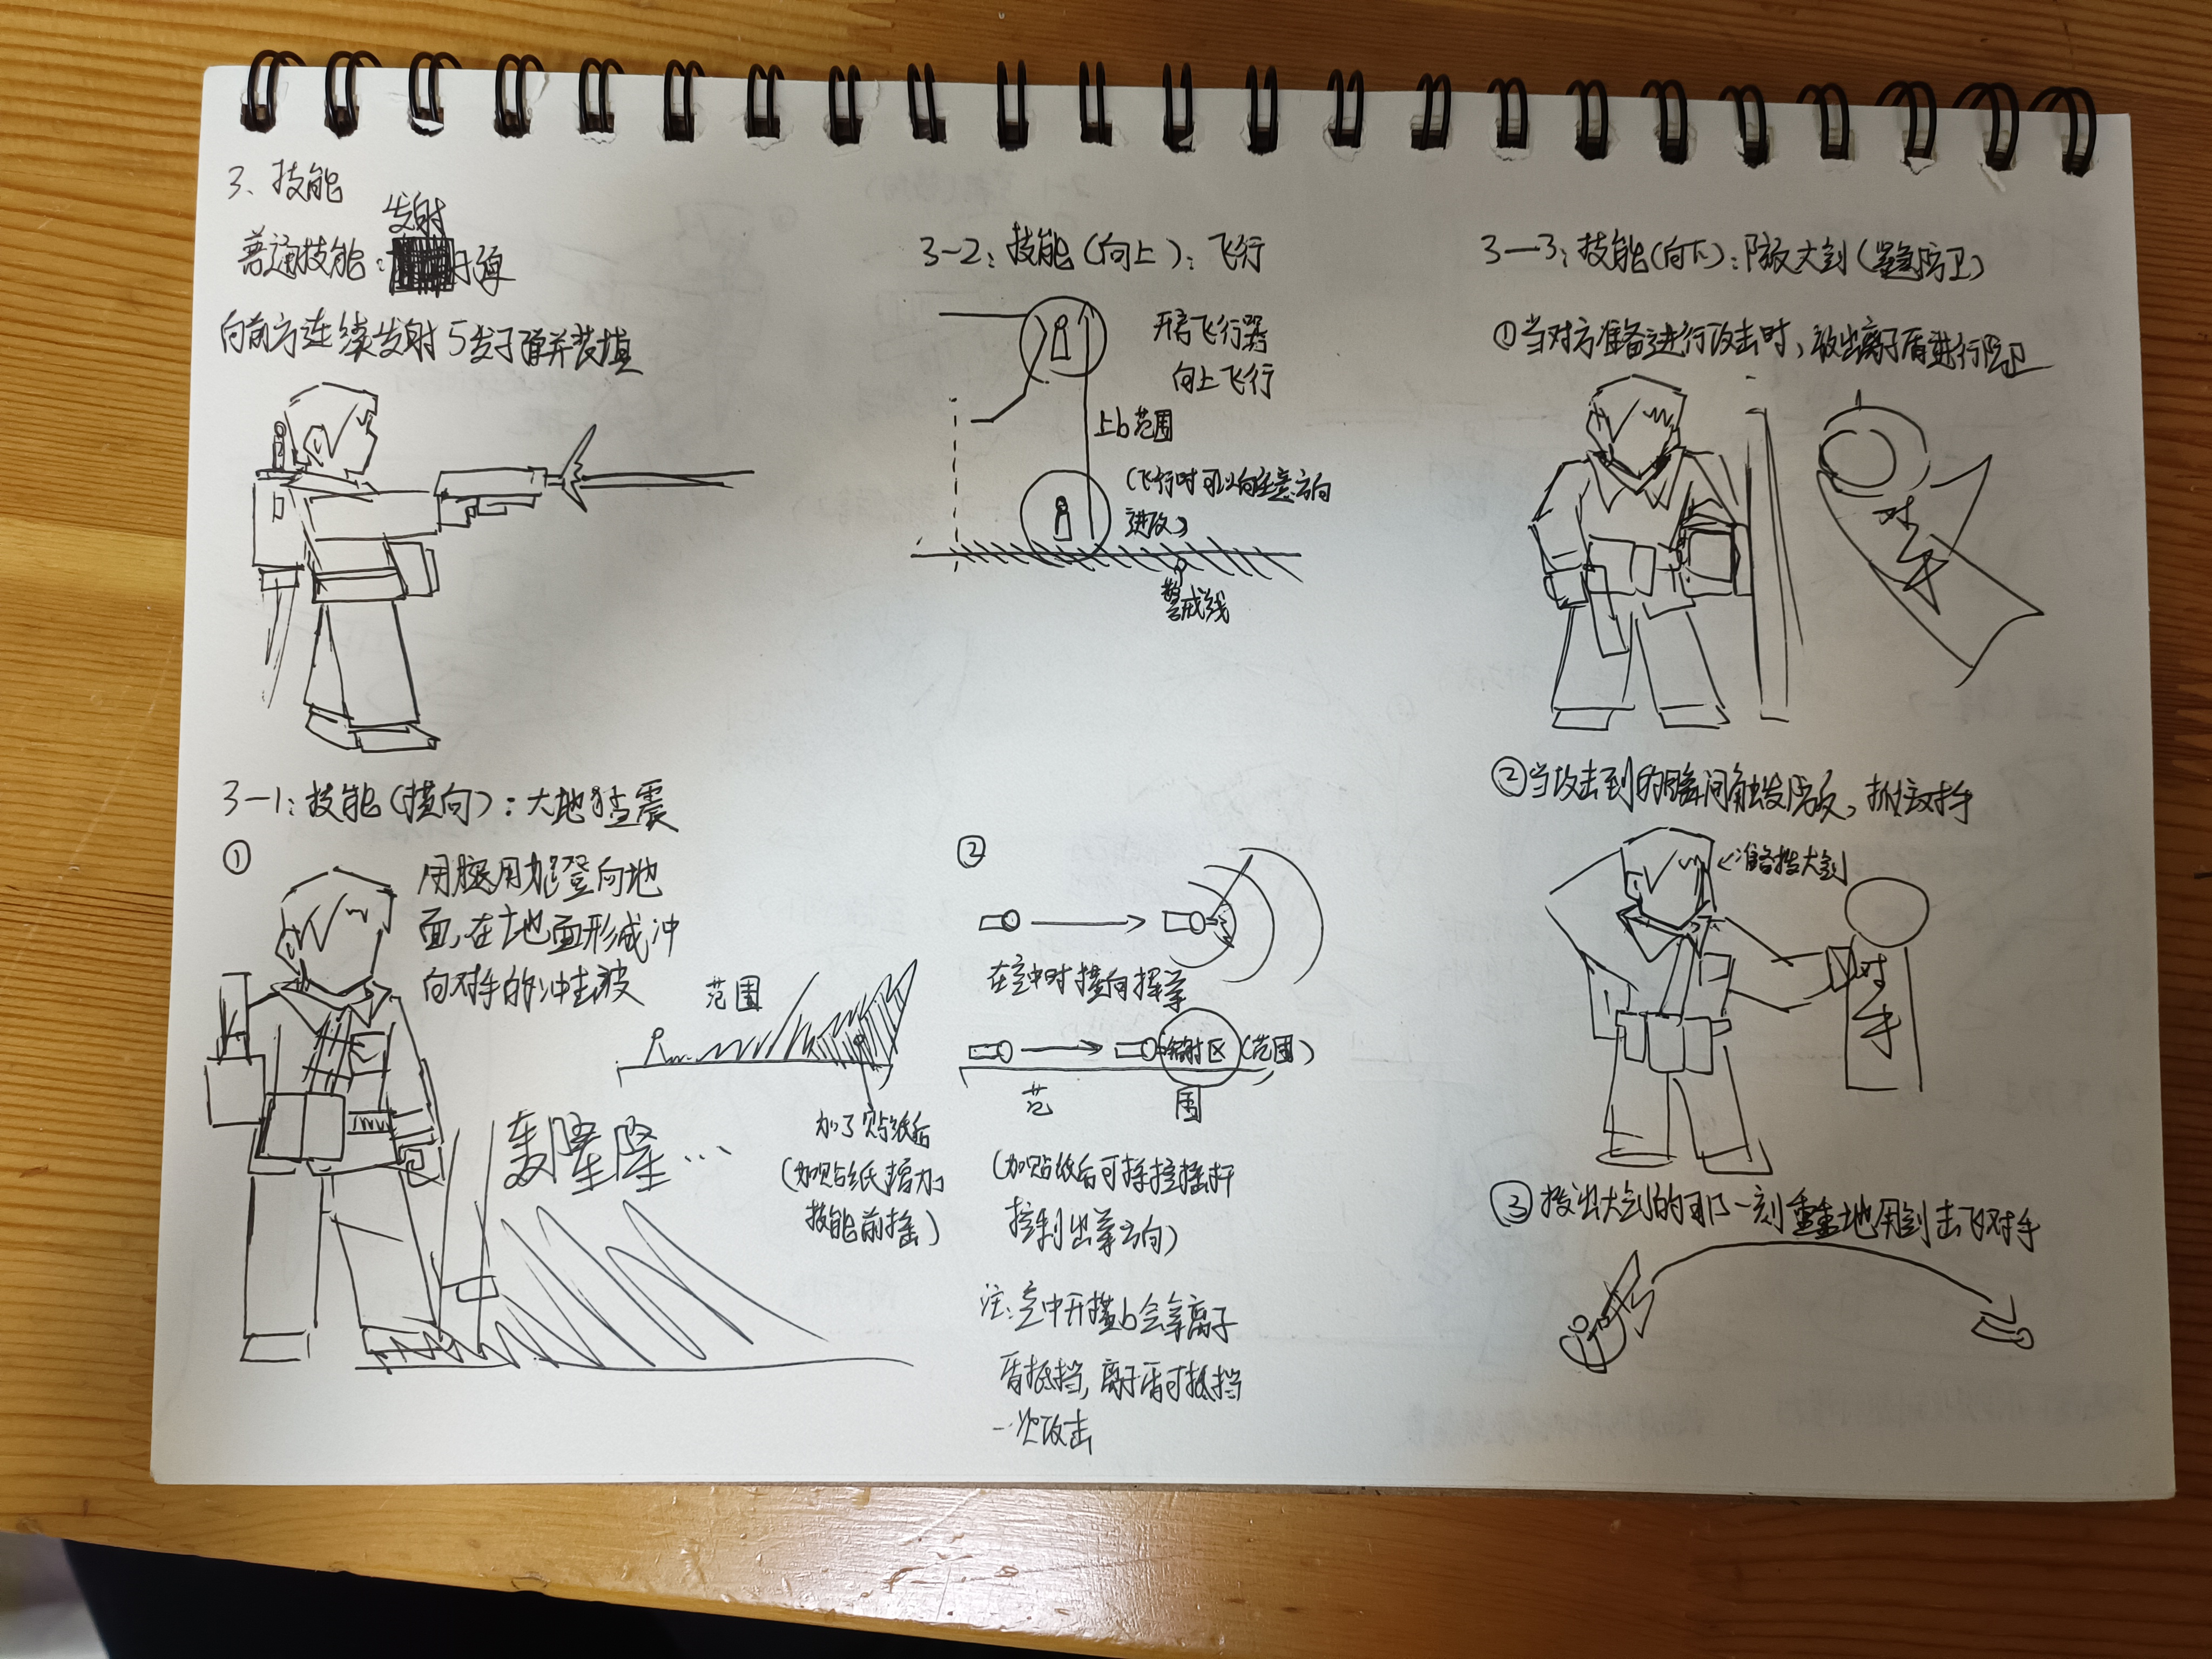 3、技能
发射
普通技能：子弹
向前方连续发射5发子弹并装填
3-1：技能（横向）：大地狂震
①
用腿用力蹬向地
面，在地面形成冲
向对手的冲击波
范围
加了贴纸后
（加贴纸增加
技能前摇）
轰隆隆…
3-2：技能（向上）：飞行
开启飞行器
向上飞行
上b范围
（飞行时可以向任意方向
进攻）
警戒线
②
在空中时横向挥拳
辐射区（范围）
范 围
（加贴纸后可操控摇杆
控制出拳方向）
注：空中开横b会拿离子
盾抵挡，离子盾可抵挡
一次攻击
3-3：技能（向下）：防反大剑（紧急防卫）
①当对方准备进行攻击时，放出离子盾进行防卫
对手
②当攻击到的瞬间触发防反，抓住对手
←准备拔大剑
对手
③拔出大剑的那一刻重重地用剑击飞对手